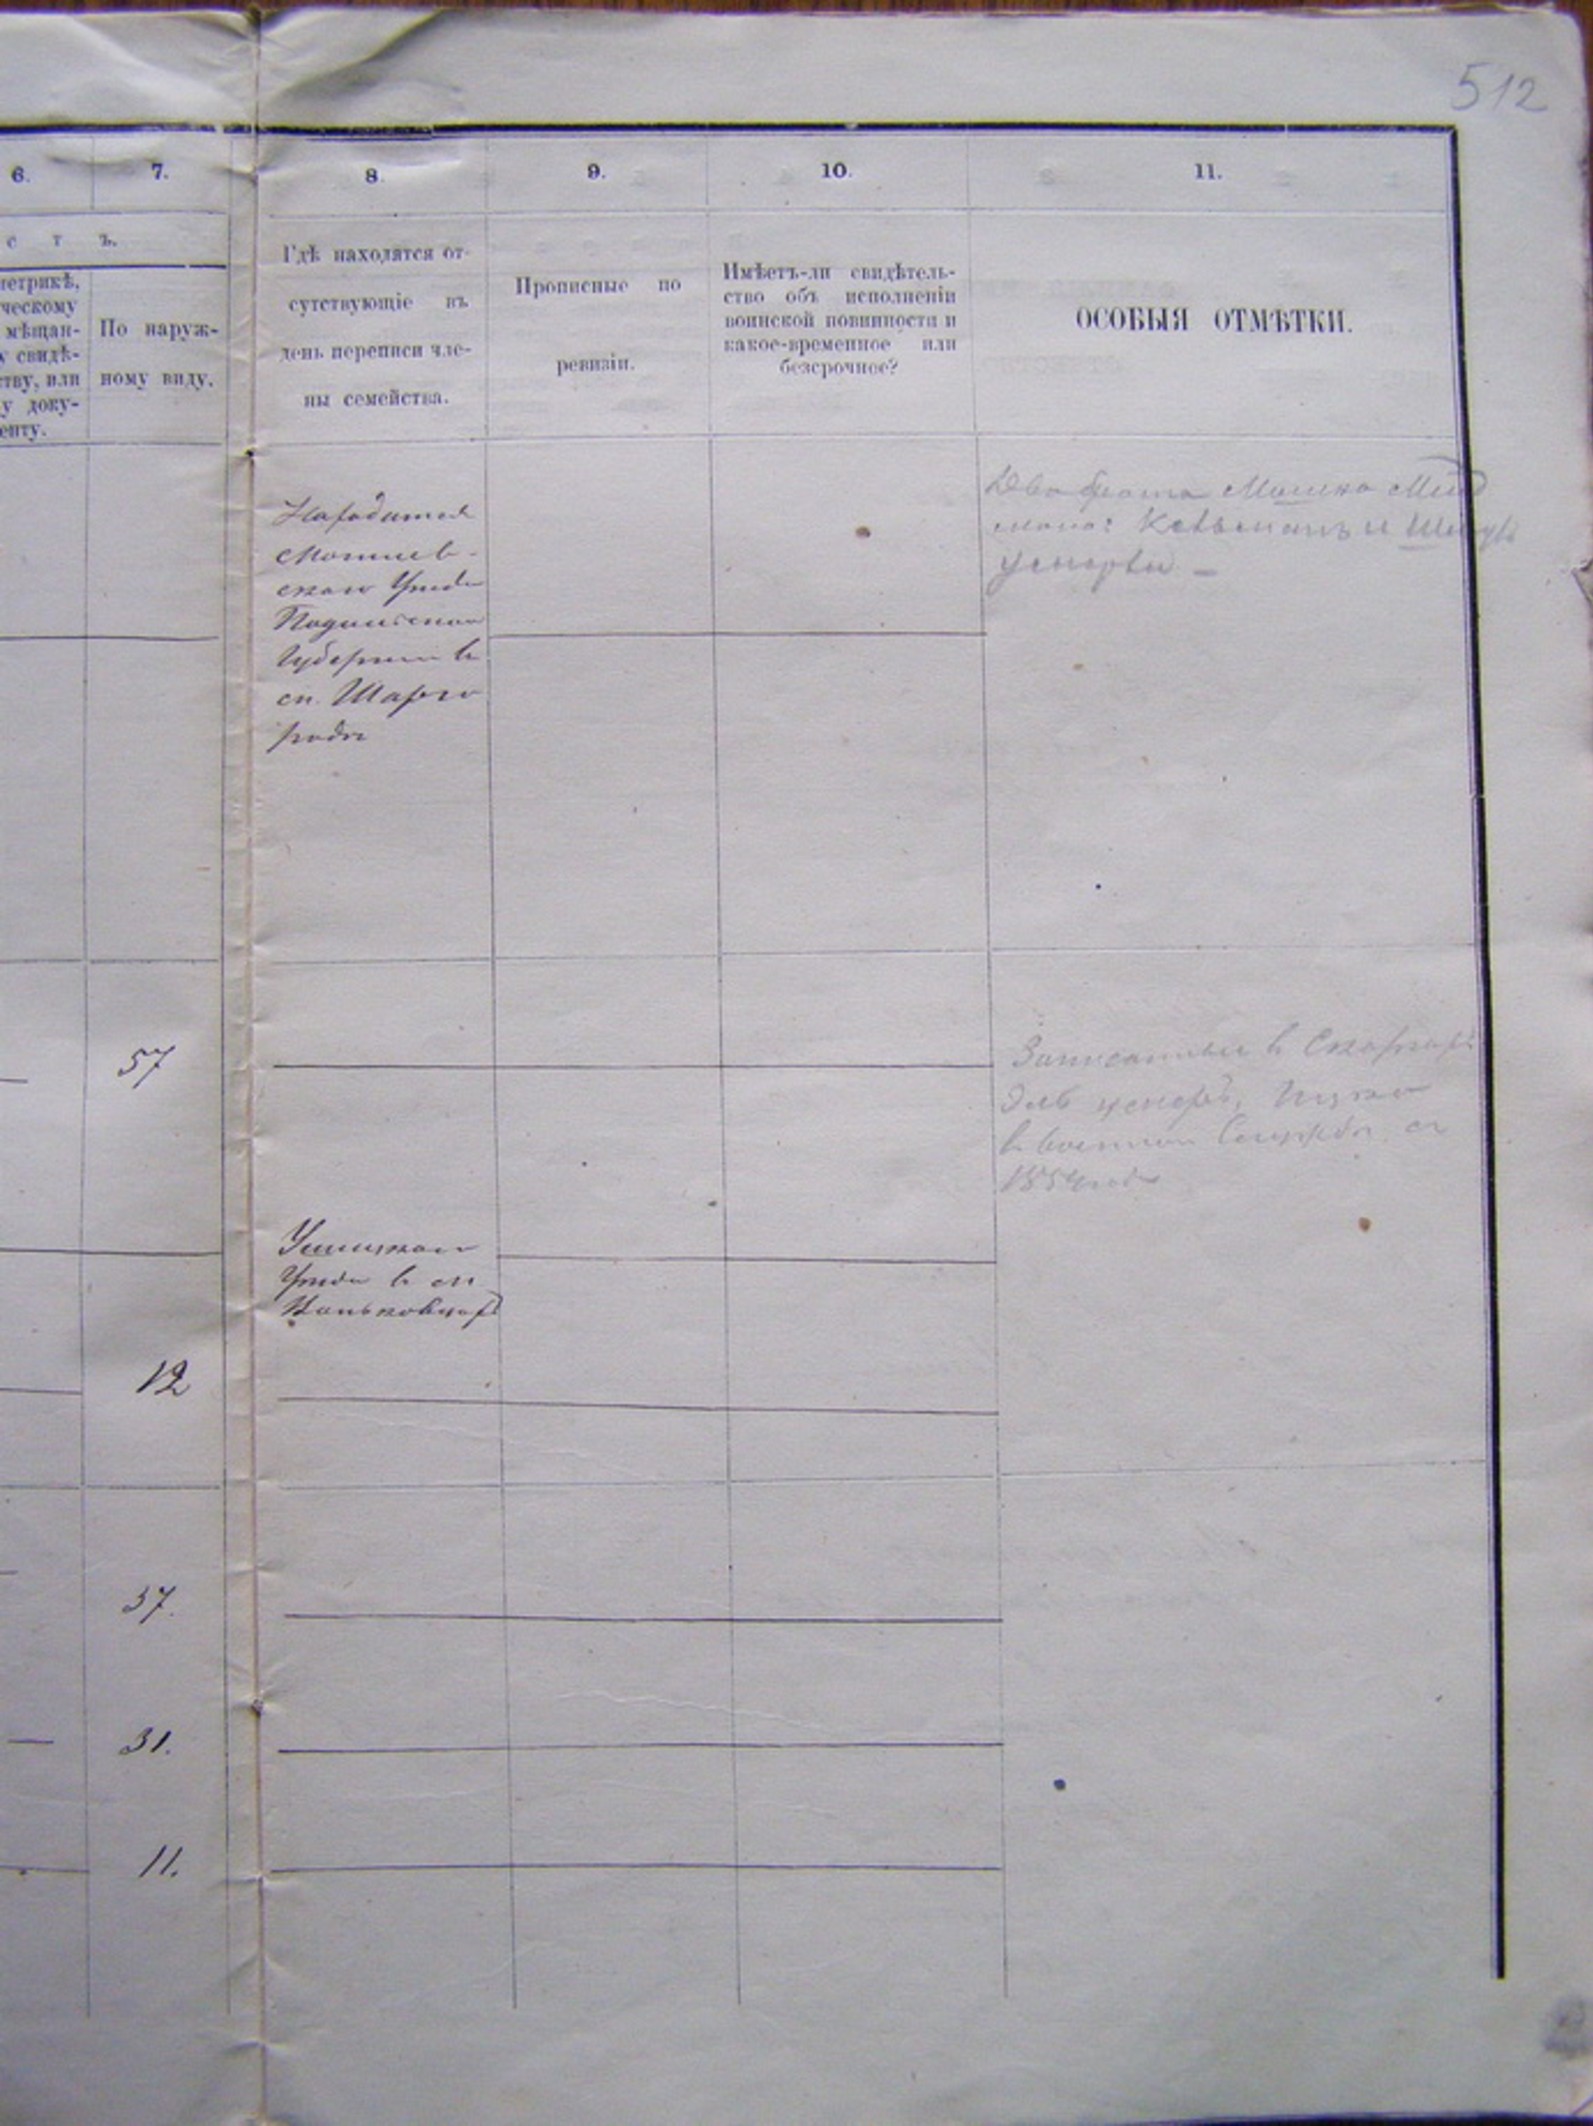 512
6. 7. 8. 9. 10. 11.
с т ъ.
метрикѣ,
ческому
мѣщан-
у свидѣ-
ству, или
у доку-
енту.
По наруж-
ному виду.
Гдѣ находятся от-
сутствующіе въ
день переписи чле-
ны семейства.
Прописные по
ревизіи.
Имѣетъ-ли свидѣтель-
ство объ исполненіи
воинской повинности и
какое-временное или
безсрочное?
ОСОБЫЯ ОТМѢТКИ.
Находится
Могилев-
скаго Уезда
Подольской
Губернии в
Шарго
роде
Два брата Мошко
Кельманъ и
умерли —
57
Записанные в
умеръ, Ицко
в военной службе с
1854 года
Ушицкаго
Уезда в
Ваньковцах
12
37.
31.
11.